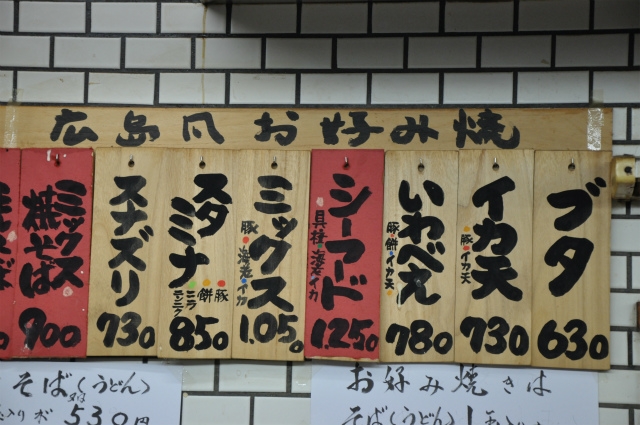 広島風お好み焼
ブタ
630
イカ天
豚・イカ天
730
いわべえ
豚・餅・イカ天
780
シーフード
貝柱・海老・イカ
1.250
ミックス
豚・海老・イカ
1.050
スタミナ
豚・餅・ニラ・ニンニク
850
スナズリ
730
ミックス
焼そば
900
お好み焼きは
そば(うどん)1玉
そば(うどん)
530円